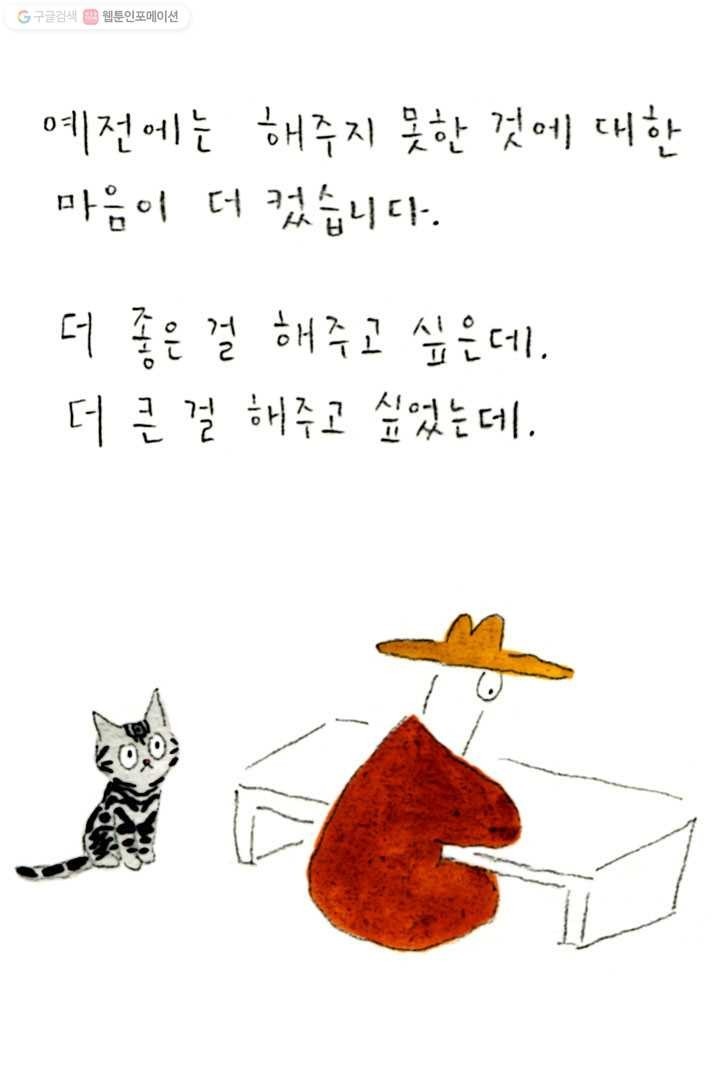 구글검색 웹툰인포메이션
예전에는 해주지 못한 것에 대한
마음이 더 컸습니다.
더 좋은 걸 해주고 싶은데.
더 큰 걸 해주고 싶었는데.